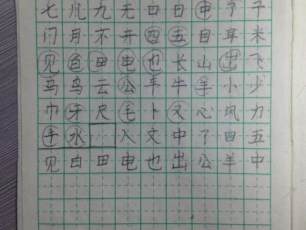 七 儿 九 无 口 日 中 个 子
门 月 不 开 四 五 目 耳 米
见 白 田 电 也 长 山 出 飞
马 鸟 云 公 车 牛 羊 小 少
巾 牙 尺 毛 卜 又 心 风 力
手 水 入 文 中 了 四 五
见 白 田 电 也 出 公 羊 中